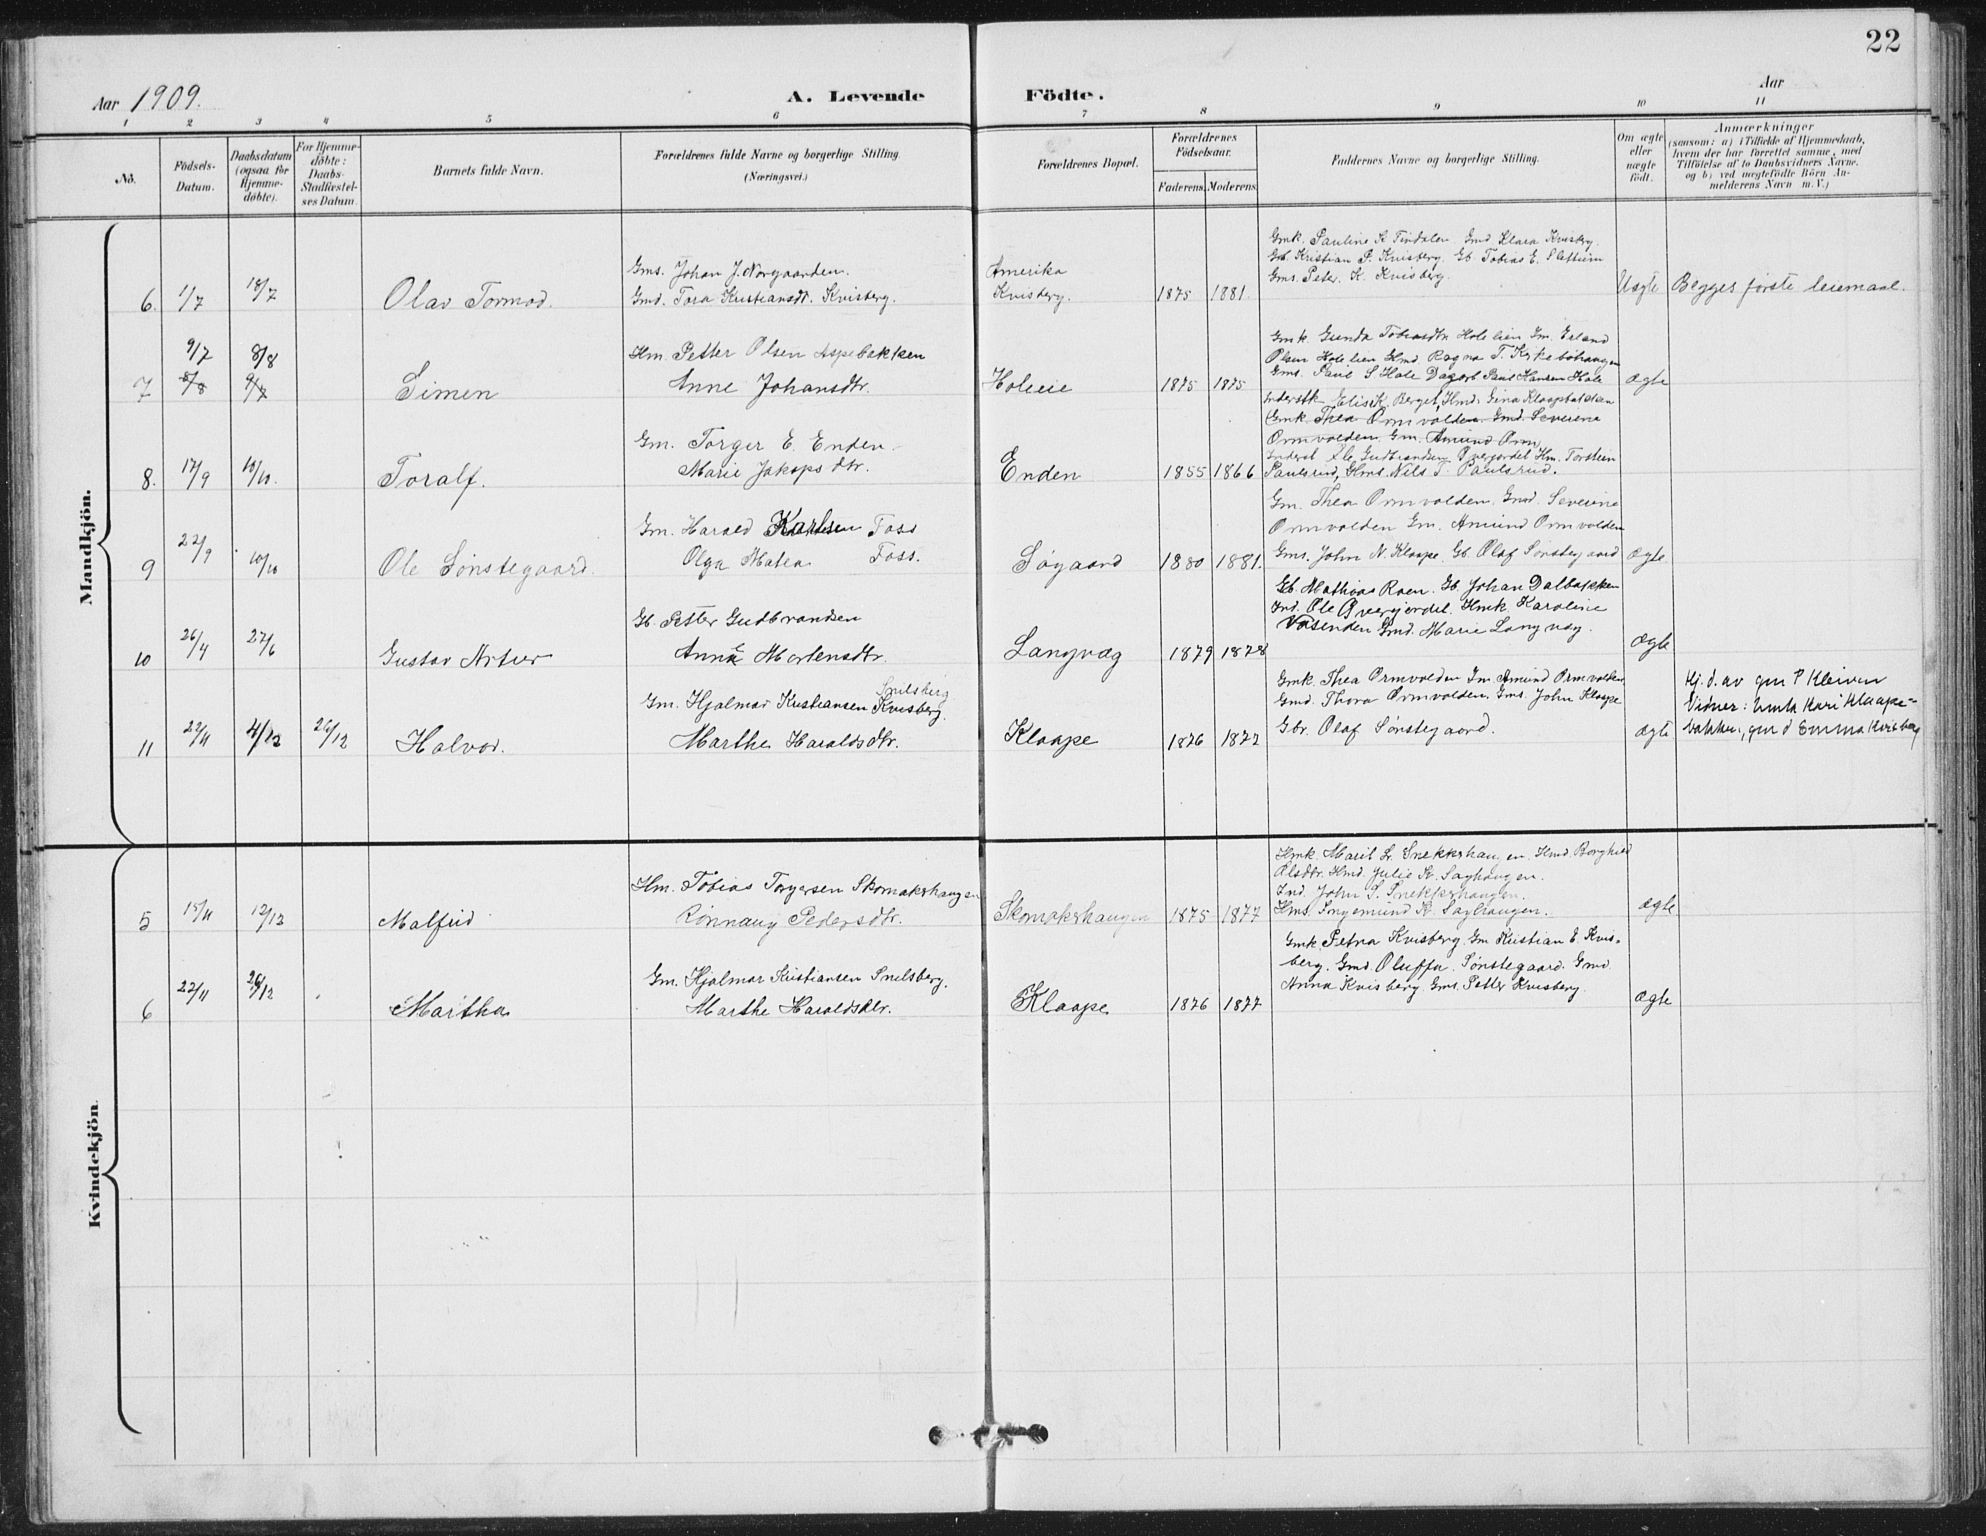 22
Aar 1909. A. Levende Födte. Aar
1 2 3 4 5 6 7 8 9 10 11
No.
Födsels-
Datum.
Daabsdatum
(ogsaa for
Hjemme-
döbte).
For Hjemme-
döbte:
Daabs-
Stadfæstel-
ses Datum.
Barnets fulde Navn.
Forældrenes fulde Navne og borgerlige Stilling.
(Næringsvei.)
Forældrenes Bopæl.
Forældrenes
Födselsaar.
Faderens. Moderens.
Faddernes Navne og borgerlige Stilling.
Om ægte
eller
uægte
födt.
Anmærkninger
(saasom: a) i Tilfælde af Hjemmedaab,
hvem der har forrettet samme, med
Tilföielse af to Daabsvidners Navne.
og b) ved uægtefödte Börn An-
melderens Navn m. V.)
Mandkjön.
6. 1/7 18/7 Olav Tormod.
Gms. Johan J. Norgaarden.
Gmd. Tora Kristiansdt. Kvisberg.
Amerika
Kvisberg.
1875 1881.
Gmk. Pauline K Tindalen Gmd Klara Kvisberg.
Gb. Kristian P. Kvisberg. Gb. Tobias E. Slettum
Gms. Peter. K. Kvisberg.
Uægte Begges første leiemaal.
7 9/7 8/8
8/8 9/7
Simen
Hm. Petter Olsen Aspebakken
Anne Johansdtr.
Holeeie
1875 1875
Gmk Gunda Tobiasdtr Holelien Gm. Erland
Olsen Holelien Hmd Ragna T. Kirkebøhaugen
Gms. Paul S Hole Dagarb Paul Hansen Hole
Ægte
8. 17/9 10/10. Toralf.
Gm. Torger E. Enden.
Marie Jakopsdtr.
Enden
1855 1866
Inderstk Elise K. Berget, Hmd. Gina Klaapbakken
Gmk Thea Ormvolden Gmd Severine
Ormvolden. Gm. Amund Orm
Inderst Ole Gudbrandsen Øverjordet Hm. Torstein
Paulsrud, Gms. Nils T. Paulsrud.
9 22/9 10/10 Ole Sønstegaard.
Gm. Harald Karlsen Foss
Olga Matea Foss.
Søgaard
1880 1881.
Gm. Thea Ormvolden. Gmd. Severine
Ormvolden Gm. Amund Ormvolden
Gms. John N. Klaape. Gb Olaf Sønstegaard
Ægte
10 26/4 27/6 Gustav Artur
Gb. Petter Gudbrandsen
Anna Mortensdtr.
Langvag
1879 1878
Gb. Mathias Roen. Gb. Johan Dalbakken
Ind. Ole Øverjordet. Hmk. Karoline
Vasenden Gmd. Marie Langvag.
Ægte
11 22/11 4/12 26/12 Halvor.
Snilsberg
Gm. Hjalmar Kristiansen Kvisberg.
Marthe Haraldsdtr.
Klaape
1876 1877
Gmk. Thea Ormvolden Gm Amund Ormvolden
Gmd. Thora Ormvolden. Gms. John Klaape
Gbr. Olaf Sønstegaard.
Ægte
Hj. d. av gm P Kleiven
Vidner: Kari Klaape-
bakken, gm d Emma Kvisberg
Kvindekjön.
5 15/11 12/12 Malfrid
Hm. Tobias Torgersen Skomakerhaugen
Rønnaug Pedersdtr.
Skomakerhaugen
1875 1877
Hmk. Marit Snekkerhaugen. Hmd. Borghild
Olsdtr. Hmd. Julie K. Saghaugen.
Ind. John S. Snekkerhaugen.
Hms. Ingemund K. Saghaugen.
Ægte
6 22/11 26/12 Martha
Gm. Hjalmar Kristiansen Snilsberg.
Marthe Haraldsdtr.
Klaape
1876 1877
Gmk. Petra Kvisberg. Gm Kristian E. Kvis-
berg. Gmd. Oluffa Sønstegaard. Gmd
Anna Kvisberg. Gms. Petter Kvisberg.
Ægte